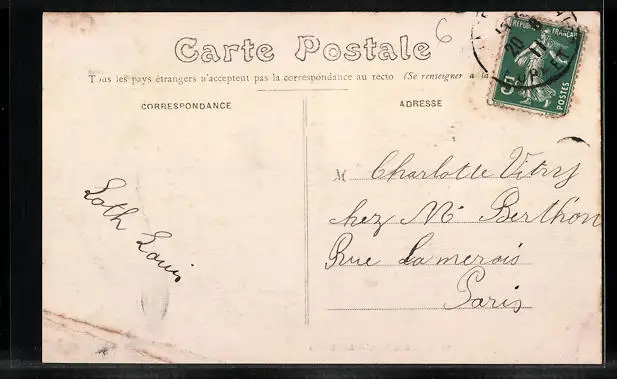 Carte Postale
6
Tous les pays étrangers n'acceptent pas la correspondance au recto (Se renseigner à la
RÉPUBLIQUE FRANÇAISE
5
POSTES
CORRESPONDANCE
ADRESSE
M Charlotte Vitry
chez Mr Berthon
Rue Lamerois
Paris
Loth Louis